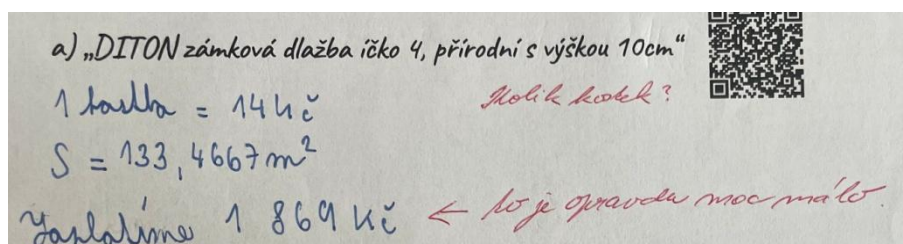 a) „DITON zámková dlažba íčko 4, přírodní s výškou 10cm“
1 kostka = 14 Kč
Kolik kostek?
S = 133,4667 m²
Zaplatíme 1 869 Kč ← to je opravdu moc málo.